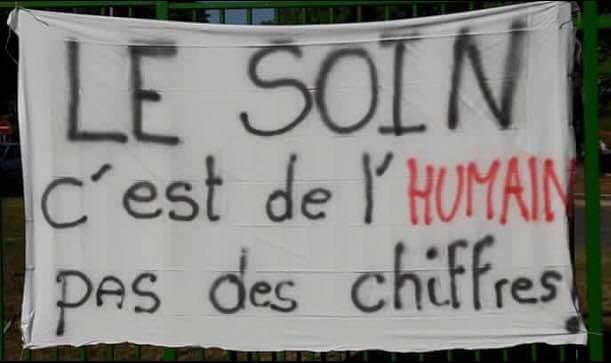 LE SOIN
c'est de l'HUMAIN
pas des chiffres.